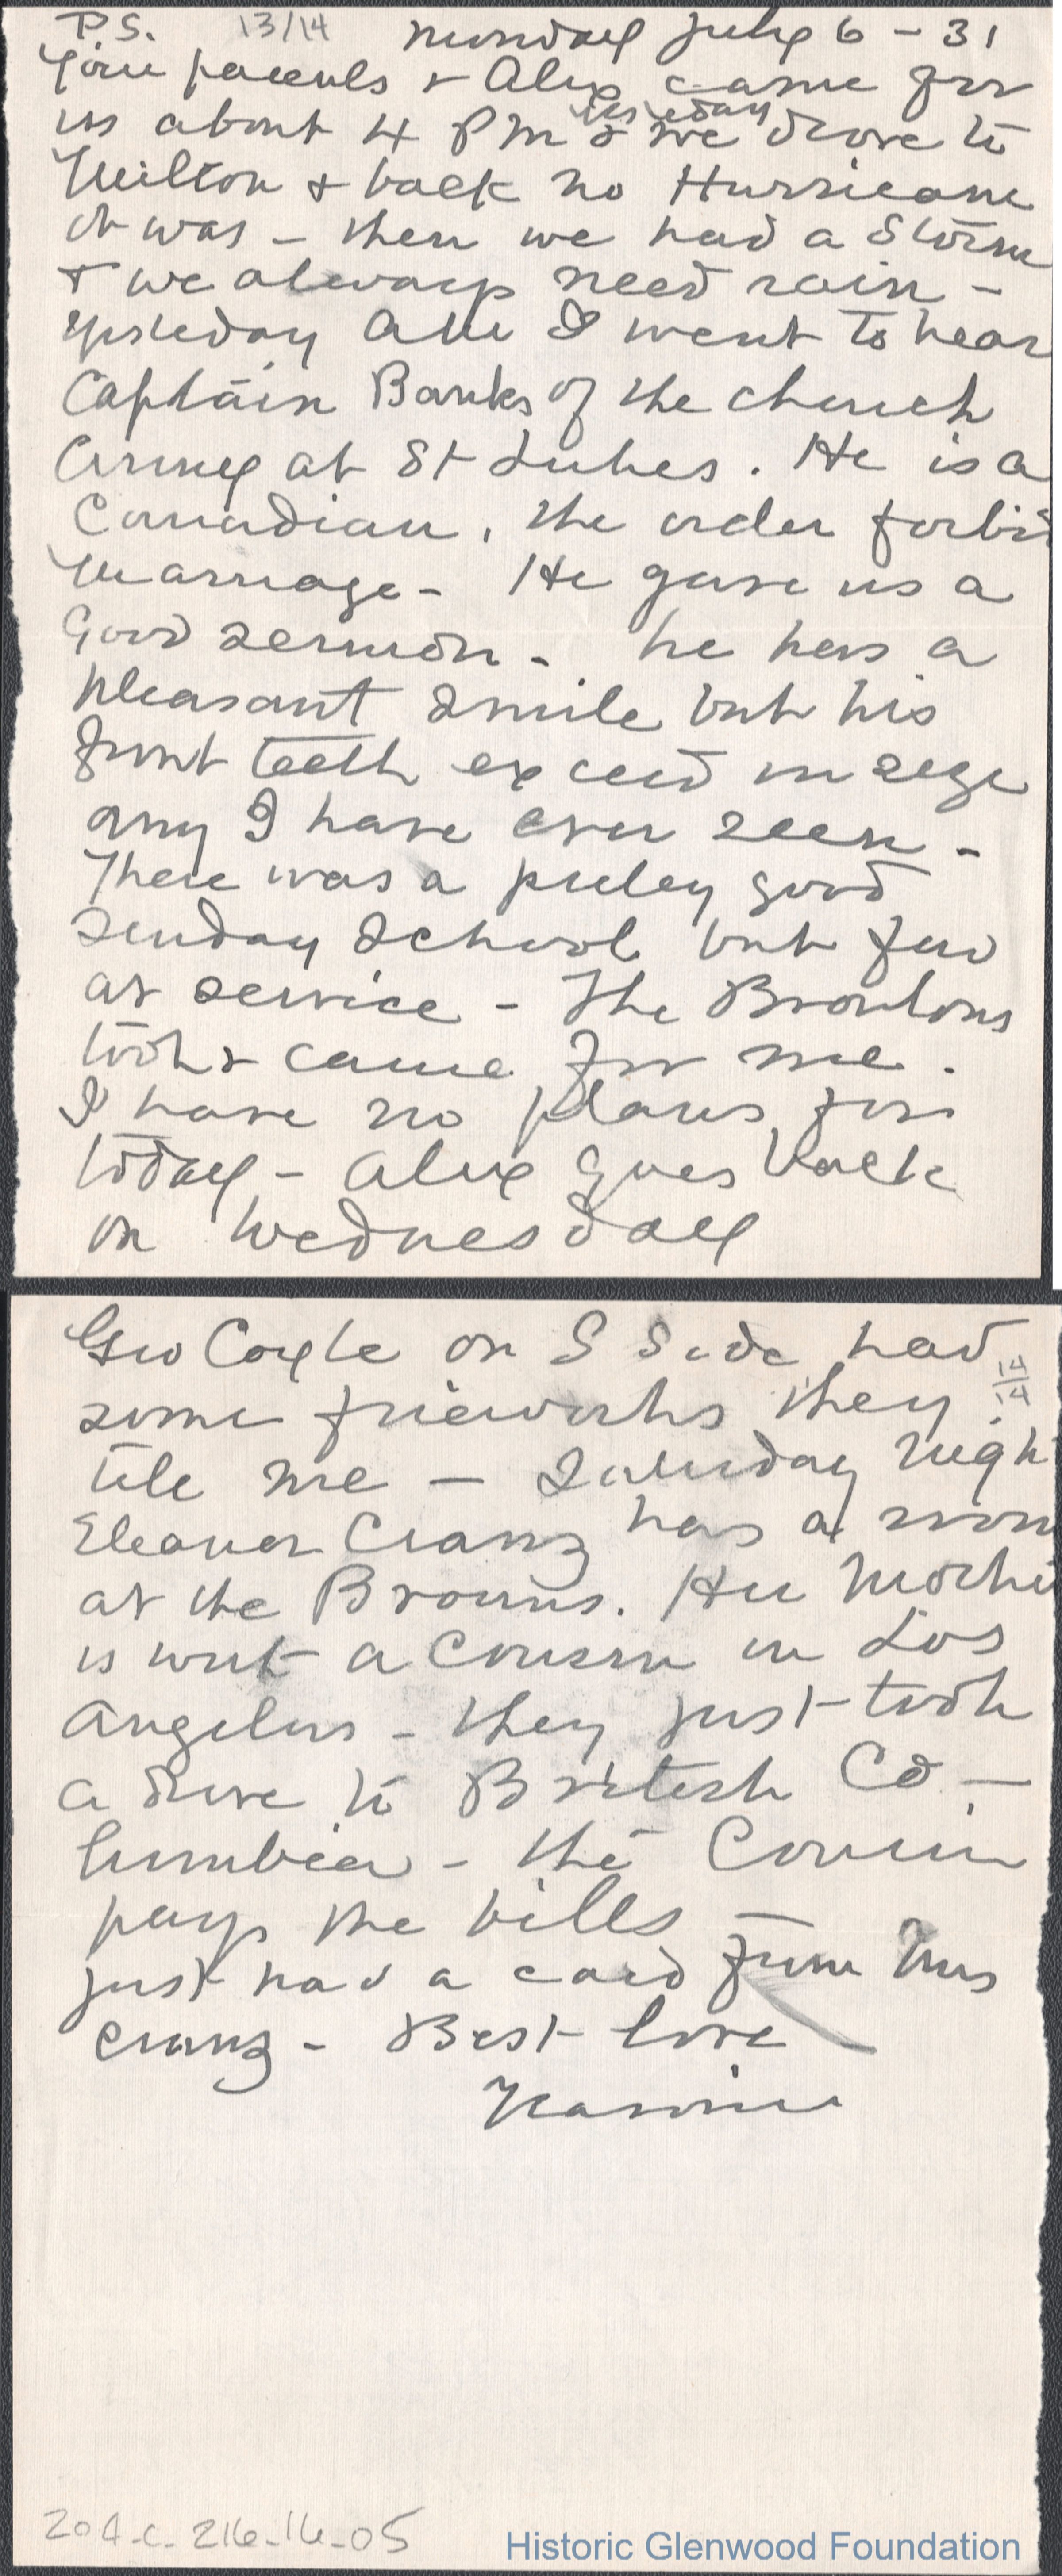 P.S. 13/14 Monday July 6 - 31
Your parents + Alex came for
yesteday
us about 4 PM & we drove to
Milton + back no Hurricane
it was - then we had a Storm
+ we always need rain -
Yesteday AM I went to hear
Captain Banks of the church
Army at St Lukes. He is a
Canadian, the order forbid
marriage - He gave us a
Good sermon - he has a
pleasant smile but his
front teeth exceed in size
any I have ever seen -
There was a pretty good
Sunday School but few
at service - The
took + came for me.
I have no plans for
today - Alex goes back
on Wednesday
Geo Coyle on S Side had
14/14
some fireworks they
tell me - Saturday nigh
Eleanor Cranz has a room
at the Browns. Her Mothe
is with a Cousin in Los
Angelus - they just took
a drive to British Co -
lumbia - the Cousin
pays the bills -
just had a card from Mrs
Cranz - Best love
204-C-216-16-05
Historic Glenwood Foundation